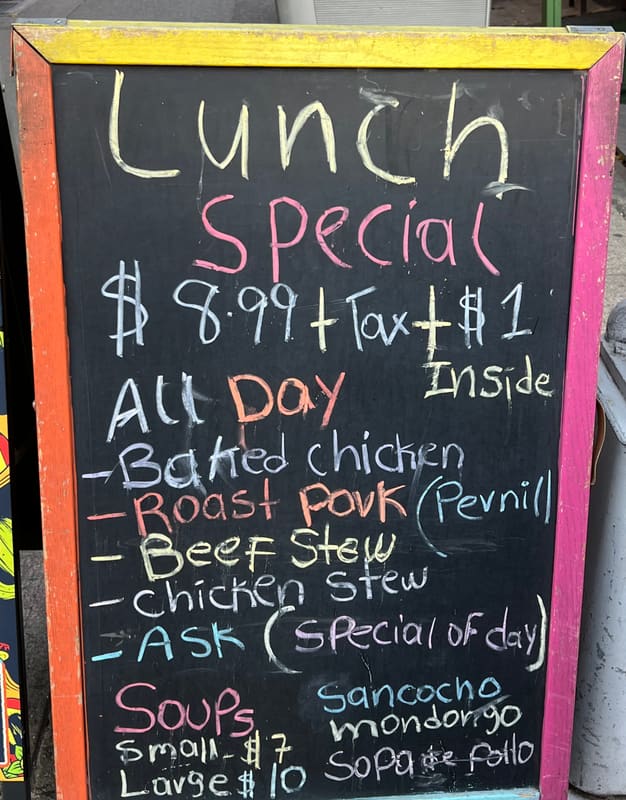 Lunch
Special
$ 8.99 + Tax + $ 1
Inside
All Day
- Baked chicken
- Roast Pork (Pernill
- Beef Stew
- chicken stew
- Ask (special of day)
Soups
Small - $ 7
Large $ 10
sancocho
mondongo
Sopa de Pollo